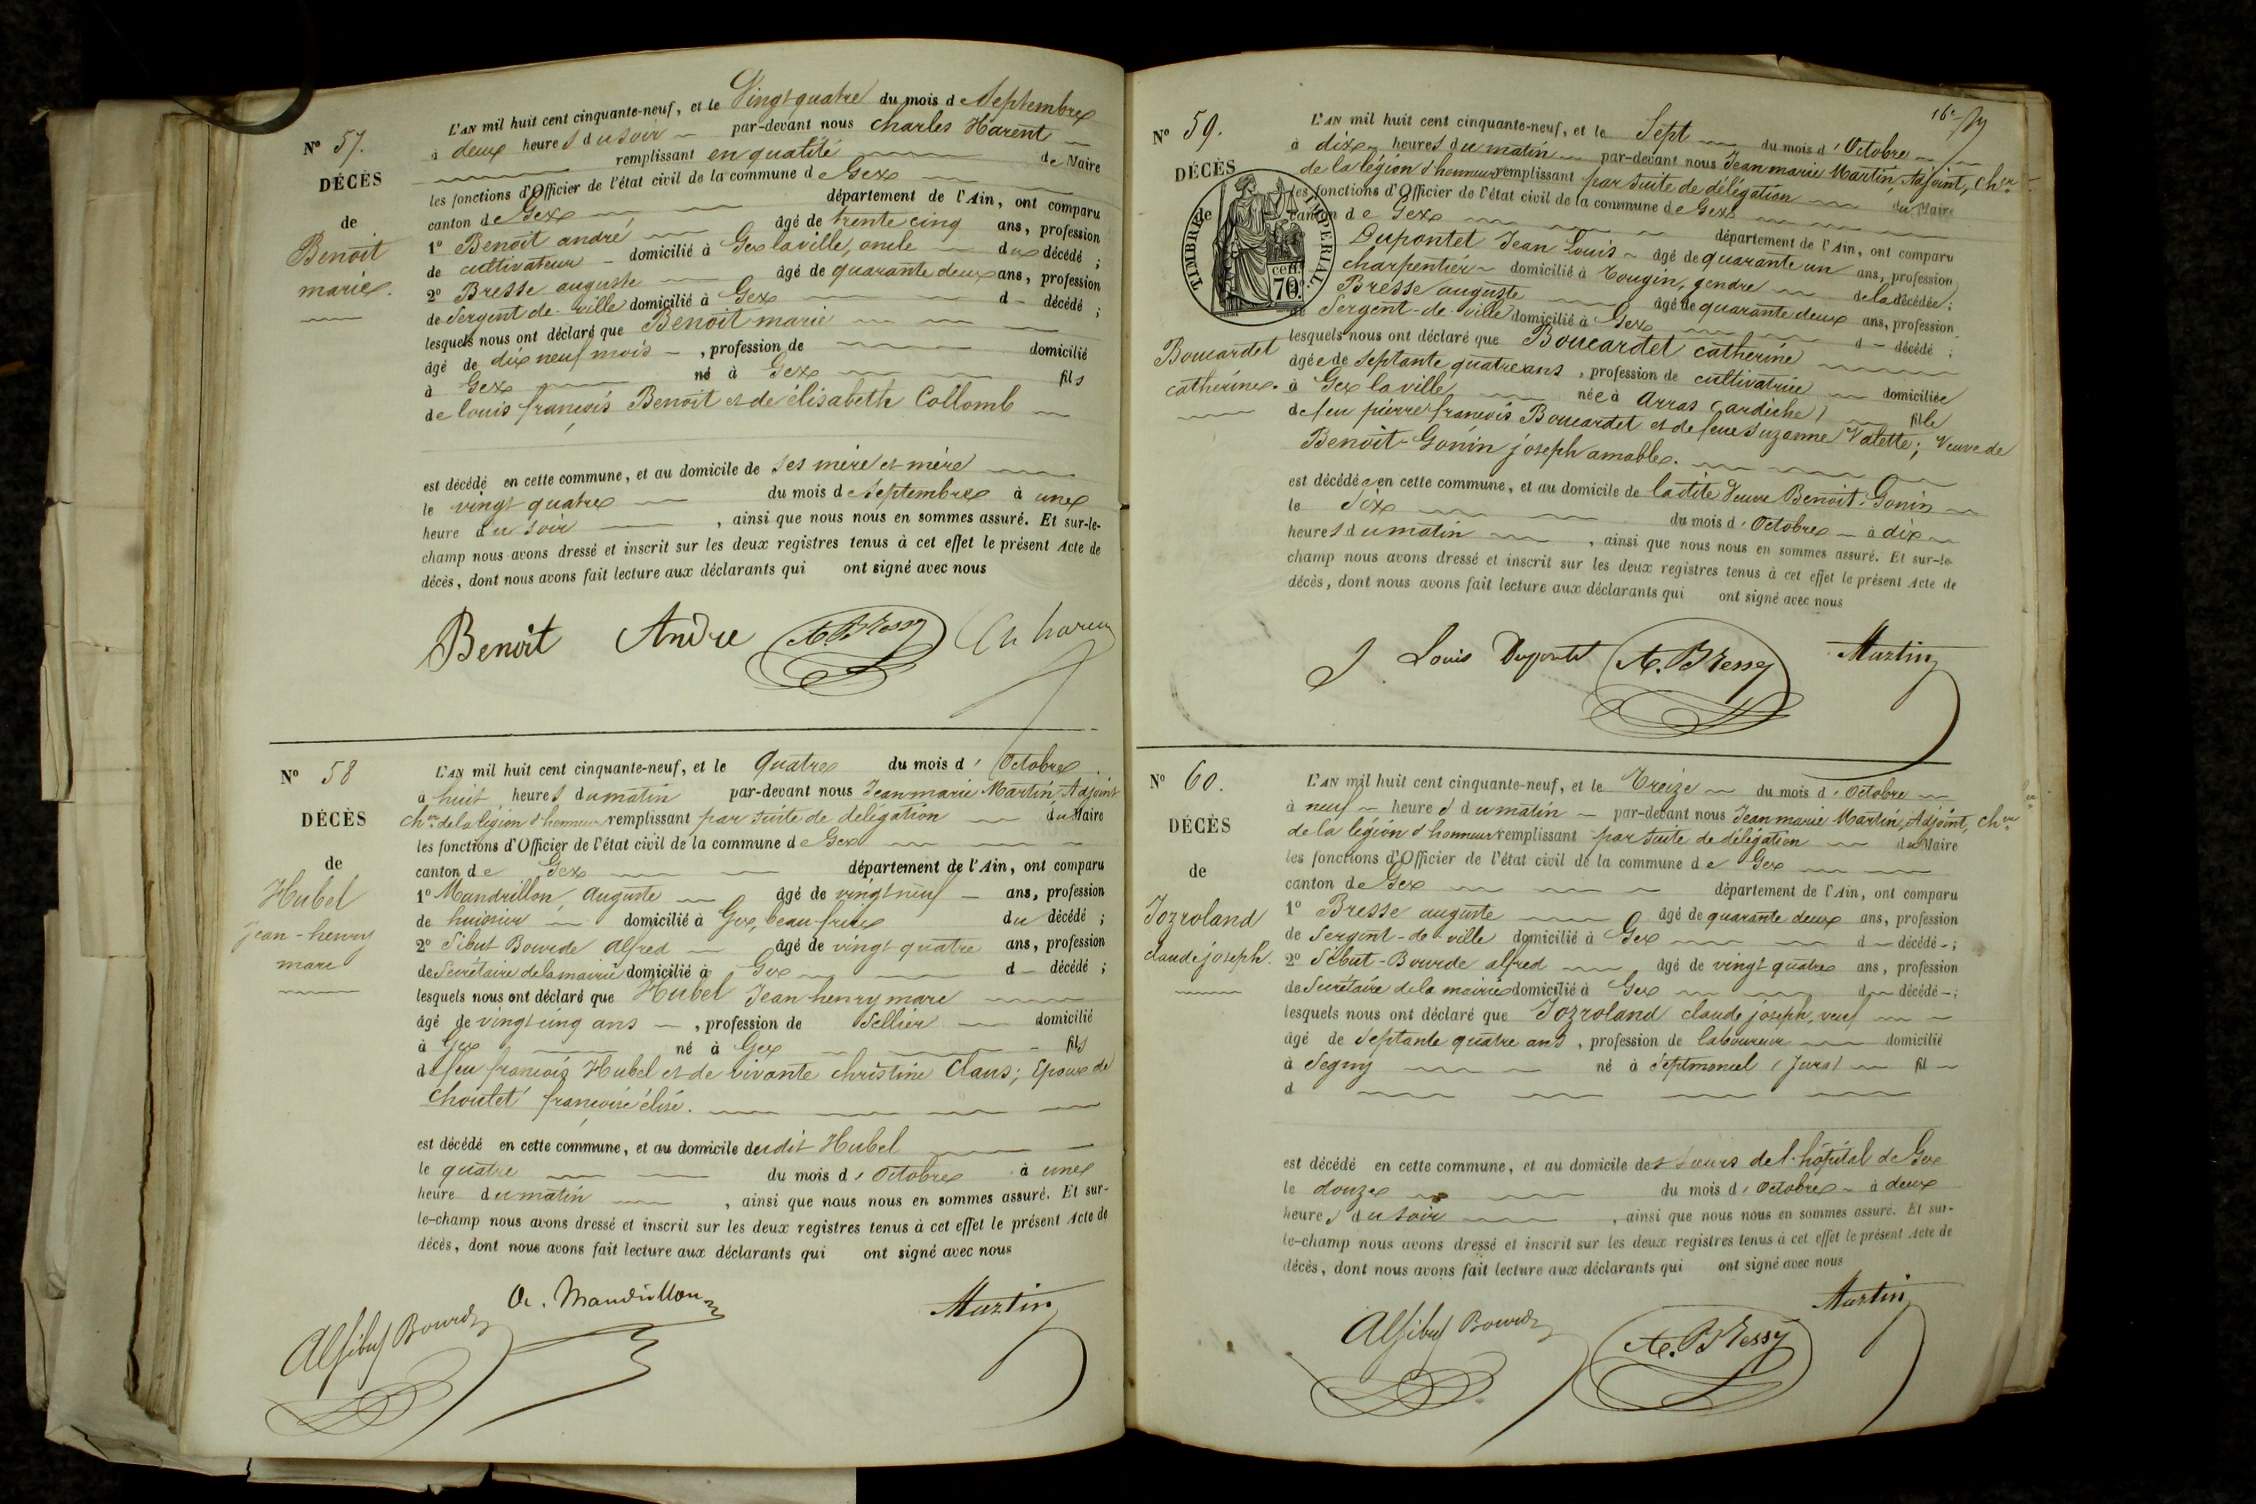 N° 57.
DÉCÈS
de
Benoit
marie.
L'AN mil huit cent cinquante-neuf, et le Vingt quatre du mois de Septembre
à deux heures du soir par-devant nous Charles Harent
remplissant en qualité de Maire
les fonctions d'Officier de l'état civil de la commune de Gex
canton de Gex département de l'Ain, ont comparu
1° Benoit andré âgé de trente cinq ans, profession
de cultivateur domicilié à Gex la ville, oncle du décédé ;
2° Bresse auguste âgé de quarante deux ans, profession
de Sergent de ville domicilié à Gex d décédé ;
lesquels nous ont déclaré que Benoit marie
âgé de dix neuf mois , profession de domicilié
à Gex né à Gex fils
de louis françois Benoit et de élisabeth Collomb
est décédé en cette commune, et au domicile de ses mère et mère
le vingt quatre du mois de Septembre à une
heure du soir , ainsi que nous nous en sommes assuré. Et sur-le-
champ nous avons dressé et inscrit sur les deux registres tenus à cet effet le présent Acte de
décès, dont nous avons fait lecture aux déclarants qui ont signé avec nous
Benoit Andre A. Bressy Ch harent
N° 58
DÉCÈS
de
Hubel
jean-henry
marc
L'AN mil huit cent cinquante-neuf, et le quatre du mois d'Octobre
à huit heures du matin par-devant nous Jean marie Martin, Adjoint
Cher de la légion d'honneur remplissant par suite de délégation du Maire
les fonctions d'Officier de l'état civil de la commune de Gex
canton de Gex département de l'Ain, ont comparu
1° Mandrillon, Auguste âgé de vingt neuf ans, profession
de huissier domicilié à Gex, beau frère du décédé ;
2° Sibut Bourde alfred âgé de vingt quatre ans, profession
de Secrétaire de la mairie domicilié à Gex d décédé ;
lesquels nous ont déclaré que Hubel Jean henry marc
âgé de vingt cinq ans , profession de Sellier domicilié
à Gex né à Gex fils
de feu françois Hubel et de vivante christine Claus ; Epoux de
Choulet françoise élise.
est décédé en cette commune, et au domicile dudit Hubel
le quatre du mois d'Octobre à une
heure du matin , ainsi que nous nous en sommes assuré. Et sur-
le-champ nous avons dressé et inscrit sur les deux registres tenus à cet effet le présent Acte de
décès, dont nous avons fait lecture aux déclarants qui ont signé avec nous
Al Sibut Bourde A. Mandrillon Martin
16e
N° 59.
DÉCÈS
de
TIMBRE IMPERIAL.
cen.
70.
Boucardet
catherine.
L'AN mil huit cent cinquante-neuf, et le Sept du mois d'Octobre
à dix heures du matin par-devant nous Jean marie Martin, Adjoint, Cher
de la légion d'honneur remplissant par suite de délégation du Maire
les fonctions d'Officier de l'état civil de la commune de Gex
canton de Gex département de l'Ain, ont comparu
Dupontet Jean Louis âgé de quarante un ans, profession
charpentier domicilié à Tougin, gendre de la décédée ;
Bresse auguste âgé de quarante deux ans, profession
de Sergent-de-ville domicilié à Gex d décédé ;
lesquels nous ont déclaré que Boucardet catherine
âgée de Septante quatre ans , profession de cultivatrice domiciliée
à Gex la ville née à Arras (ardèche) fille
de feu pierre françois Boucardet et de feue Suzanne Valette ; Veuve de
Benoit-Gonin joseph amable.
est décédée en cette commune, et au domicile de ladite Veuve Benoit-Gonin
le Six du mois d'Octobre à dix
heures du matin , ainsi que nous nous en sommes assuré. Et sur-le-
champ nous avons dressé et inscrit sur les deux registres tenus à cet effet le présent Acte de
décès, dont nous avons fait lecture aux déclarants qui ont signé avec nous
J. Louis Dupontet A. Bressy Martin
N° 60.
DÉCÈS
de
Jozroland
claude joseph.
L'AN mil huit cent cinquante-neuf, et le Treize du mois d'Octobre
à neuf heures du matin par-devant nous Jean marie Martin, Adjoint, Cher
de la légion d'honneur remplissant par suite de délégation du Maire
les fonctions d'Officier de l'état civil de la commune de Gex
canton de Gex département de l'Ain, ont comparu
1° Bresse auguste âgé de quarante deux ans, profession
de Sergent-de-ville domicilié à Gex d décédé ;
2° Sibut-Bourde alfred âgé de vingt quatre ans, profession
de Secrétaire de la mairie domicilié à Gex d décédé ;
lesquels nous ont déclaré que Jozroland claude joseph, veuf
âgé de Septante quatre ans , profession de laboureur domicilié
à Segny né à Septmoncel (Jura) fil
d
est décédé en cette commune, et au domicile des Sœurs de l'hôpital de Gex
le douze du mois d'Octobre à deux
heures du soir , ainsi que nous nous en sommes assuré. Et sur-
le-champ nous avons dressé et inscrit sur les deux registres tenus à cet effet le présent Acte de
décès, dont nous avons fait lecture aux déclarants qui ont signé avec nous
Al Sibut Bourde A. Bressy Martin